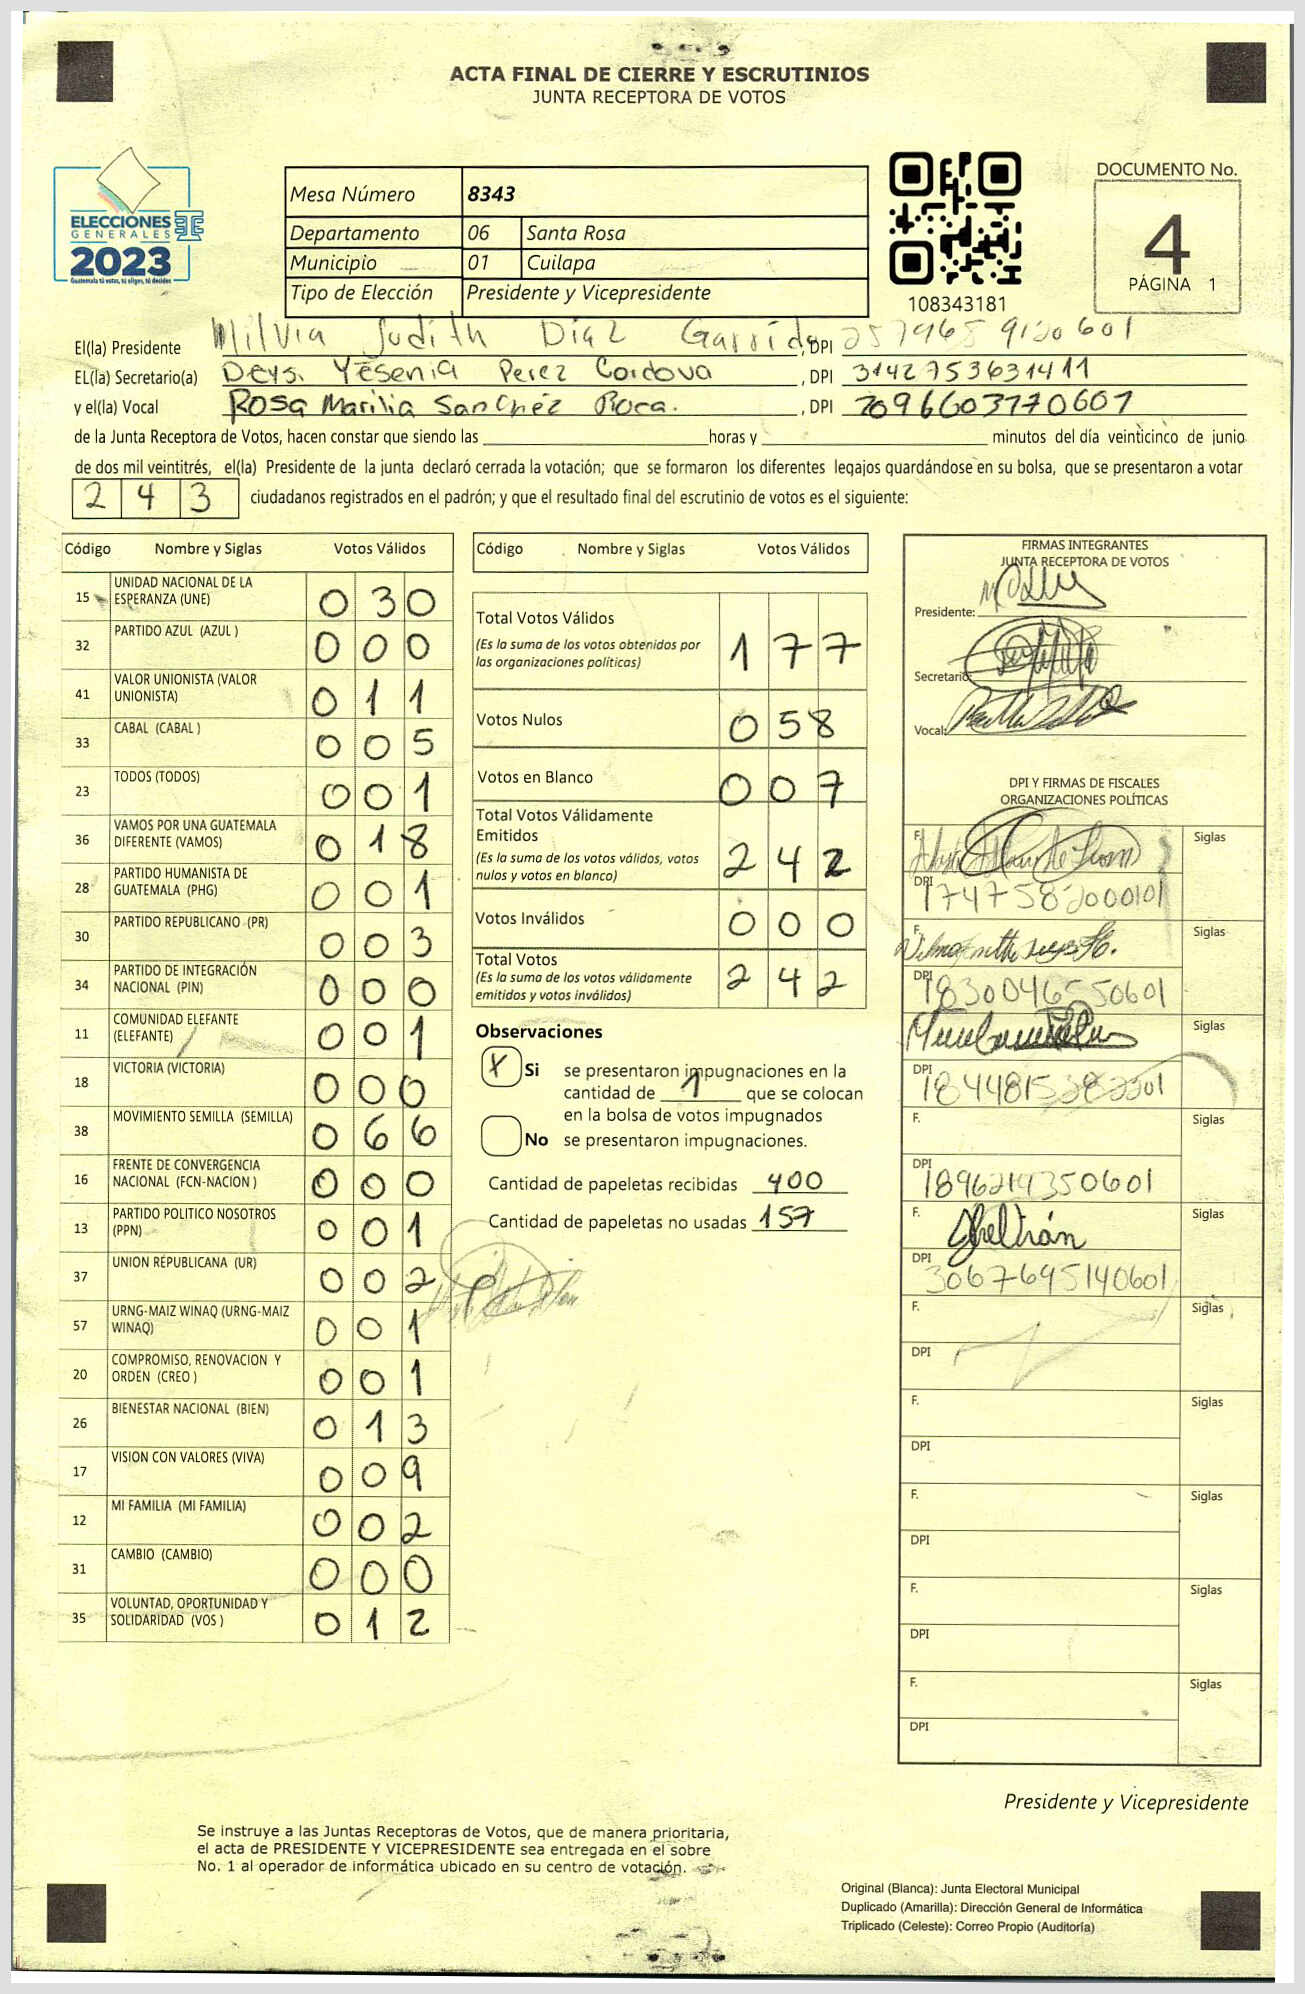 ACTA FINAL DE CIERRE Y ESCRUTINIOS
JUNTA RECEPTORA DE VOTOS
ELECCIONES
GENERALES
2023
Guatemala tú votas, tú eliges, tú decides
Mesa Número 8343
Departamento 06 Santa Rosa
Municipio 01 Cuilapa
Tipo de Elección Presidente y Vicepresidente
108343181
DOCUMENTO No.
4
PÁGINA 1
El(la) Presidente Milvia Judith Diaz Garrido, DPI
EL(la) Secretario(a) Deys. Yesenia Perez Cordova, DPI 3142753631411
y el(la) Vocal Rosa Marilia Sanchéz Roca., DPI
de la Junta Receptora de Votos, hacen constar que siendo las horas y minutos del día veinticinco de junio
de dos mil veintitrés, el(la) Presidente de la junta declaró cerrada la votación; que se formaron los diferentes legajos guardándose en su bolsa, que se presentaron a votar
243 ciudadanos registrados en el padrón; y que el resultado final del escrutinio de votos es el siguiente:
Código Nombre y Siglas Votos Válidos
15 UNIDAD NACIONAL DE LA ESPERANZA (UNE) 030
32 PARTIDO AZUL (AZUL ) 000
41 VALOR UNIONISTA (VALOR UNIONISTA) 011
33 CABAL (CABAL ) 005
23 TODOS (TODOS) 001
36 VAMOS POR UNA GUATEMALA DIFERENTE (VAMOS) 018
28 PARTIDO HUMANISTA DE GUATEMALA (PHG) 001
30 PARTIDO REPUBLICANO (PR) 003
34 PARTIDO DE INTEGRACIÓN NACIONAL (PIN) 000
11 COMUNIDAD ELEFANTE (ELEFANTE) 001
18 VICTORIA (VICTORIA) 000
38 MOVIMIENTO SEMILLA (SEMILLA) 066
16 FRENTE DE CONVERGENCIA NACIONAL (FCN-NACION ) 000
13 PARTIDO POLITICO NOSOTROS (PPN) 001
37 UNION REPUBLICANA (UR) 002
57 URNG-MAIZ WINAQ (URNG-MAIZ WINAQ) 001
20 COMPROMISO, RENOVACION Y ORDEN (CREO ) 001
26 BIENESTAR NACIONAL (BIEN) 013
17 VISION CON VALORES (VIVA) 009
12 MI FAMILIA (MI FAMILIA) 002
31 CAMBIO (CAMBIO) 000
35 VOLUNTAD, OPORTUNIDAD Y SOLIDARIDAD (VOS ) 012
Código Nombre y Siglas Votos Válidos
Total Votos Válidos 177
(Es la suma de los votos obtenidos por
las organizaciones políticas)
Votos Nulos 058
Votos en Blanco 007
Total Votos Válidamente
Emitidos 242
(Es la suma de los votos válidos, votos
nulos y votos en blanco)
Votos Inválidos 000
Total Votos 242
(Es la suma de los votos válidamente
emitidos y votos inválidos)
Observaciones
X Si se presentaron impugnaciones en la
cantidad de 1 que se colocan
en la bolsa de votos impugnados
No se presentaron impugnaciones.
Cantidad de papeletas recibidas 400
Cantidad de papeletas no usadas 157
FIRMAS INTEGRANTES
JUNTA RECEPTORA DE VOTOS
Presidente:
Secretario:
Vocal:
DPI Y FIRMAS DE FISCALES
ORGANIZACIONES POLÍTICAS
F. Siglas
DPI
F. Siglas
DPI 1830046550601
F. Siglas
DPI
F. Siglas
DPI
F. Beltrán Siglas
DPI 3067695140601
F. Siglas
DPI
F. Siglas
DPI
F. Siglas
DPI
F. Siglas
DPI
F. Siglas
DPI
Presidente y Vicepresidente
Se instruye a las Juntas Receptoras de Votos, que de manera prioritaria,
el acta de PRESIDENTE Y VICEPRESIDENTE sea entregada en el sobre
No. 1 al operador de informática ubicado en su centro de votación.
Original (Blanca): Junta Electoral Municipal
Duplicado (Amarilla): Dirección General de Informática
Triplicado (Celeste): Correo Propio (Auditoría)